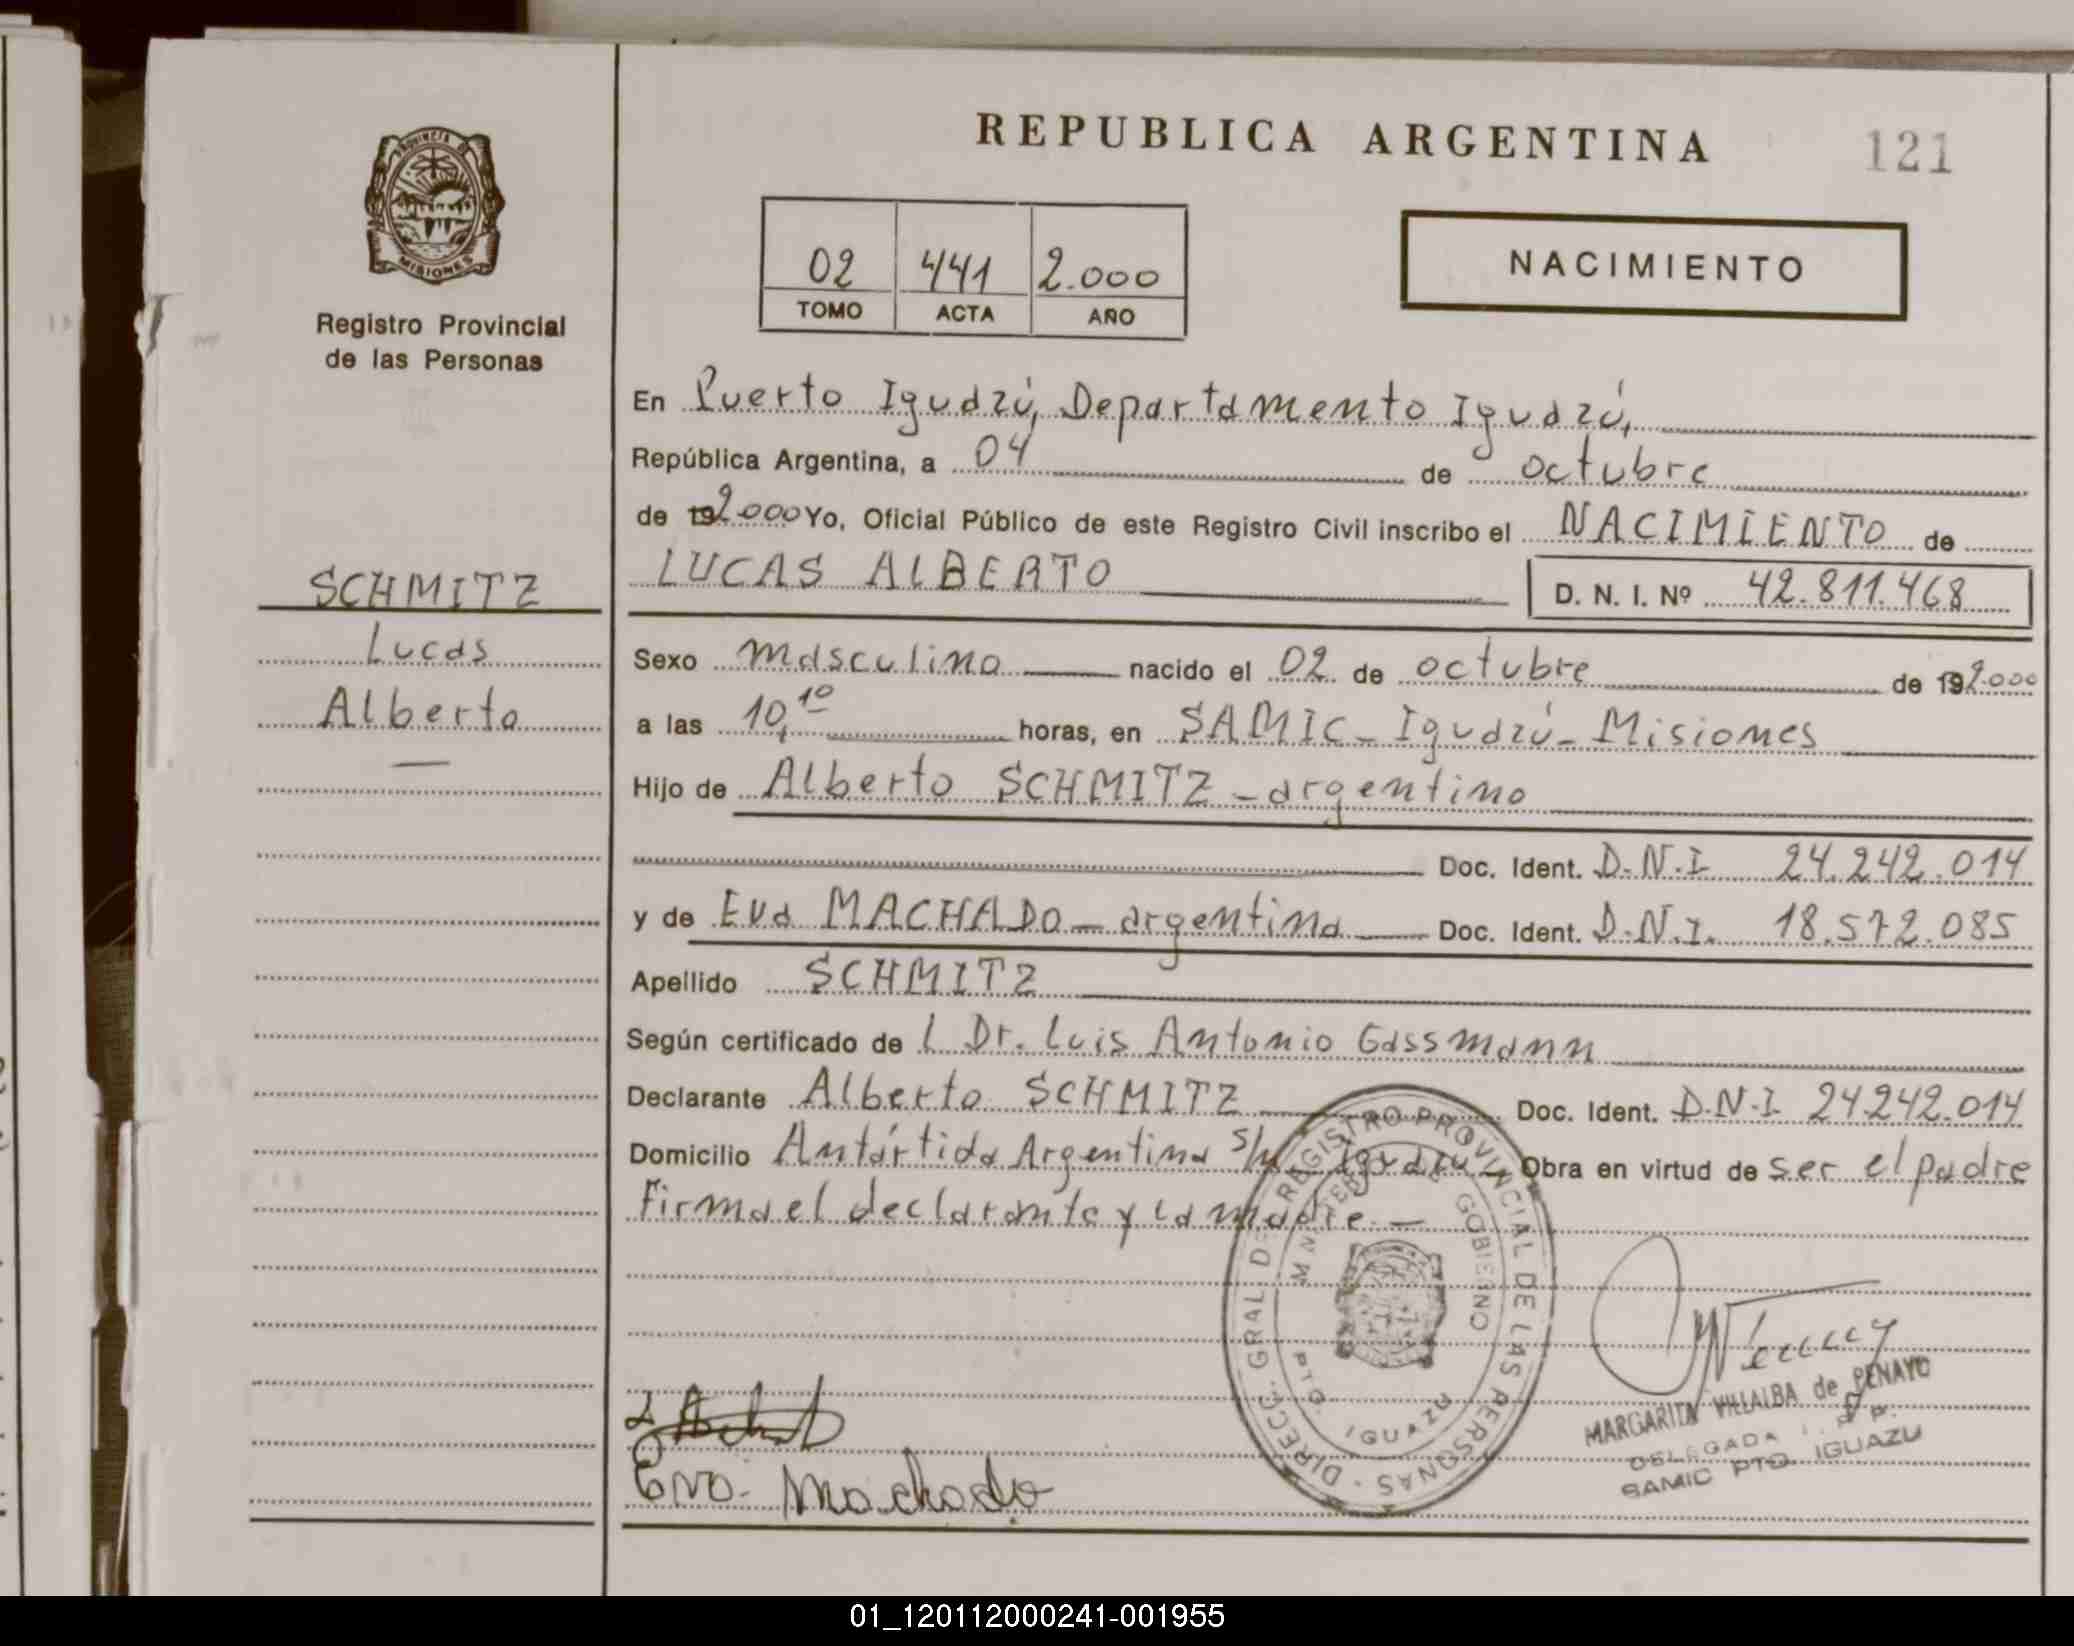 REPUBLICA ARGENTINA
121
PROVINCIA DE
MISIONES
Registro Provincial
de las Personas
02 441 2.000
TOMO ACTA AÑO
NACIMIENTO
SCHMITZ
Lucas
Alberto
—
En Puerto Iguazú, Departamento Iguazú,
República Argentina, a 04 de octubre
de 19 2.000 Yo, Oficial Público de este Registro Civil inscribo el NACIMIENTO de
LUCAS ALBERTO
D. N. I. Nº 42.811.468
Sexo masculino nacido el 02 de octubre de 19 2.000
a las 10,10 horas, en SAMIC - Iguazú - Misiones
Hijo de Alberto SCHMITZ - argentino
Doc. Ident. D.N.I 24.242.014
y de Eva MACHADO - argentina Doc. Ident. D.N.I. 18.572.085
Apellido SCHMITZ
Según certificado de l Dr. Luis Antonio Gassmann
Declarante Alberto SCHMITZ Doc. Ident. D.N.I 24.242.014
Domicilio Antártida Argentina s/n Iguazú Obra en virtud de ser el padre
Firma el declarante y la madre. —
DIRECC. GRAL DE REGISTRO PROVINCIAL DE LAS PERSONAS
MINISTERIO DE GOBIERNO
PTO. IGUAZU
Eva Machado
MARGARITA VILLALBA de PENAYO
DELEGADA R. P. P.
SAMIC PTO. IGUAZU
01_120112000241-001955